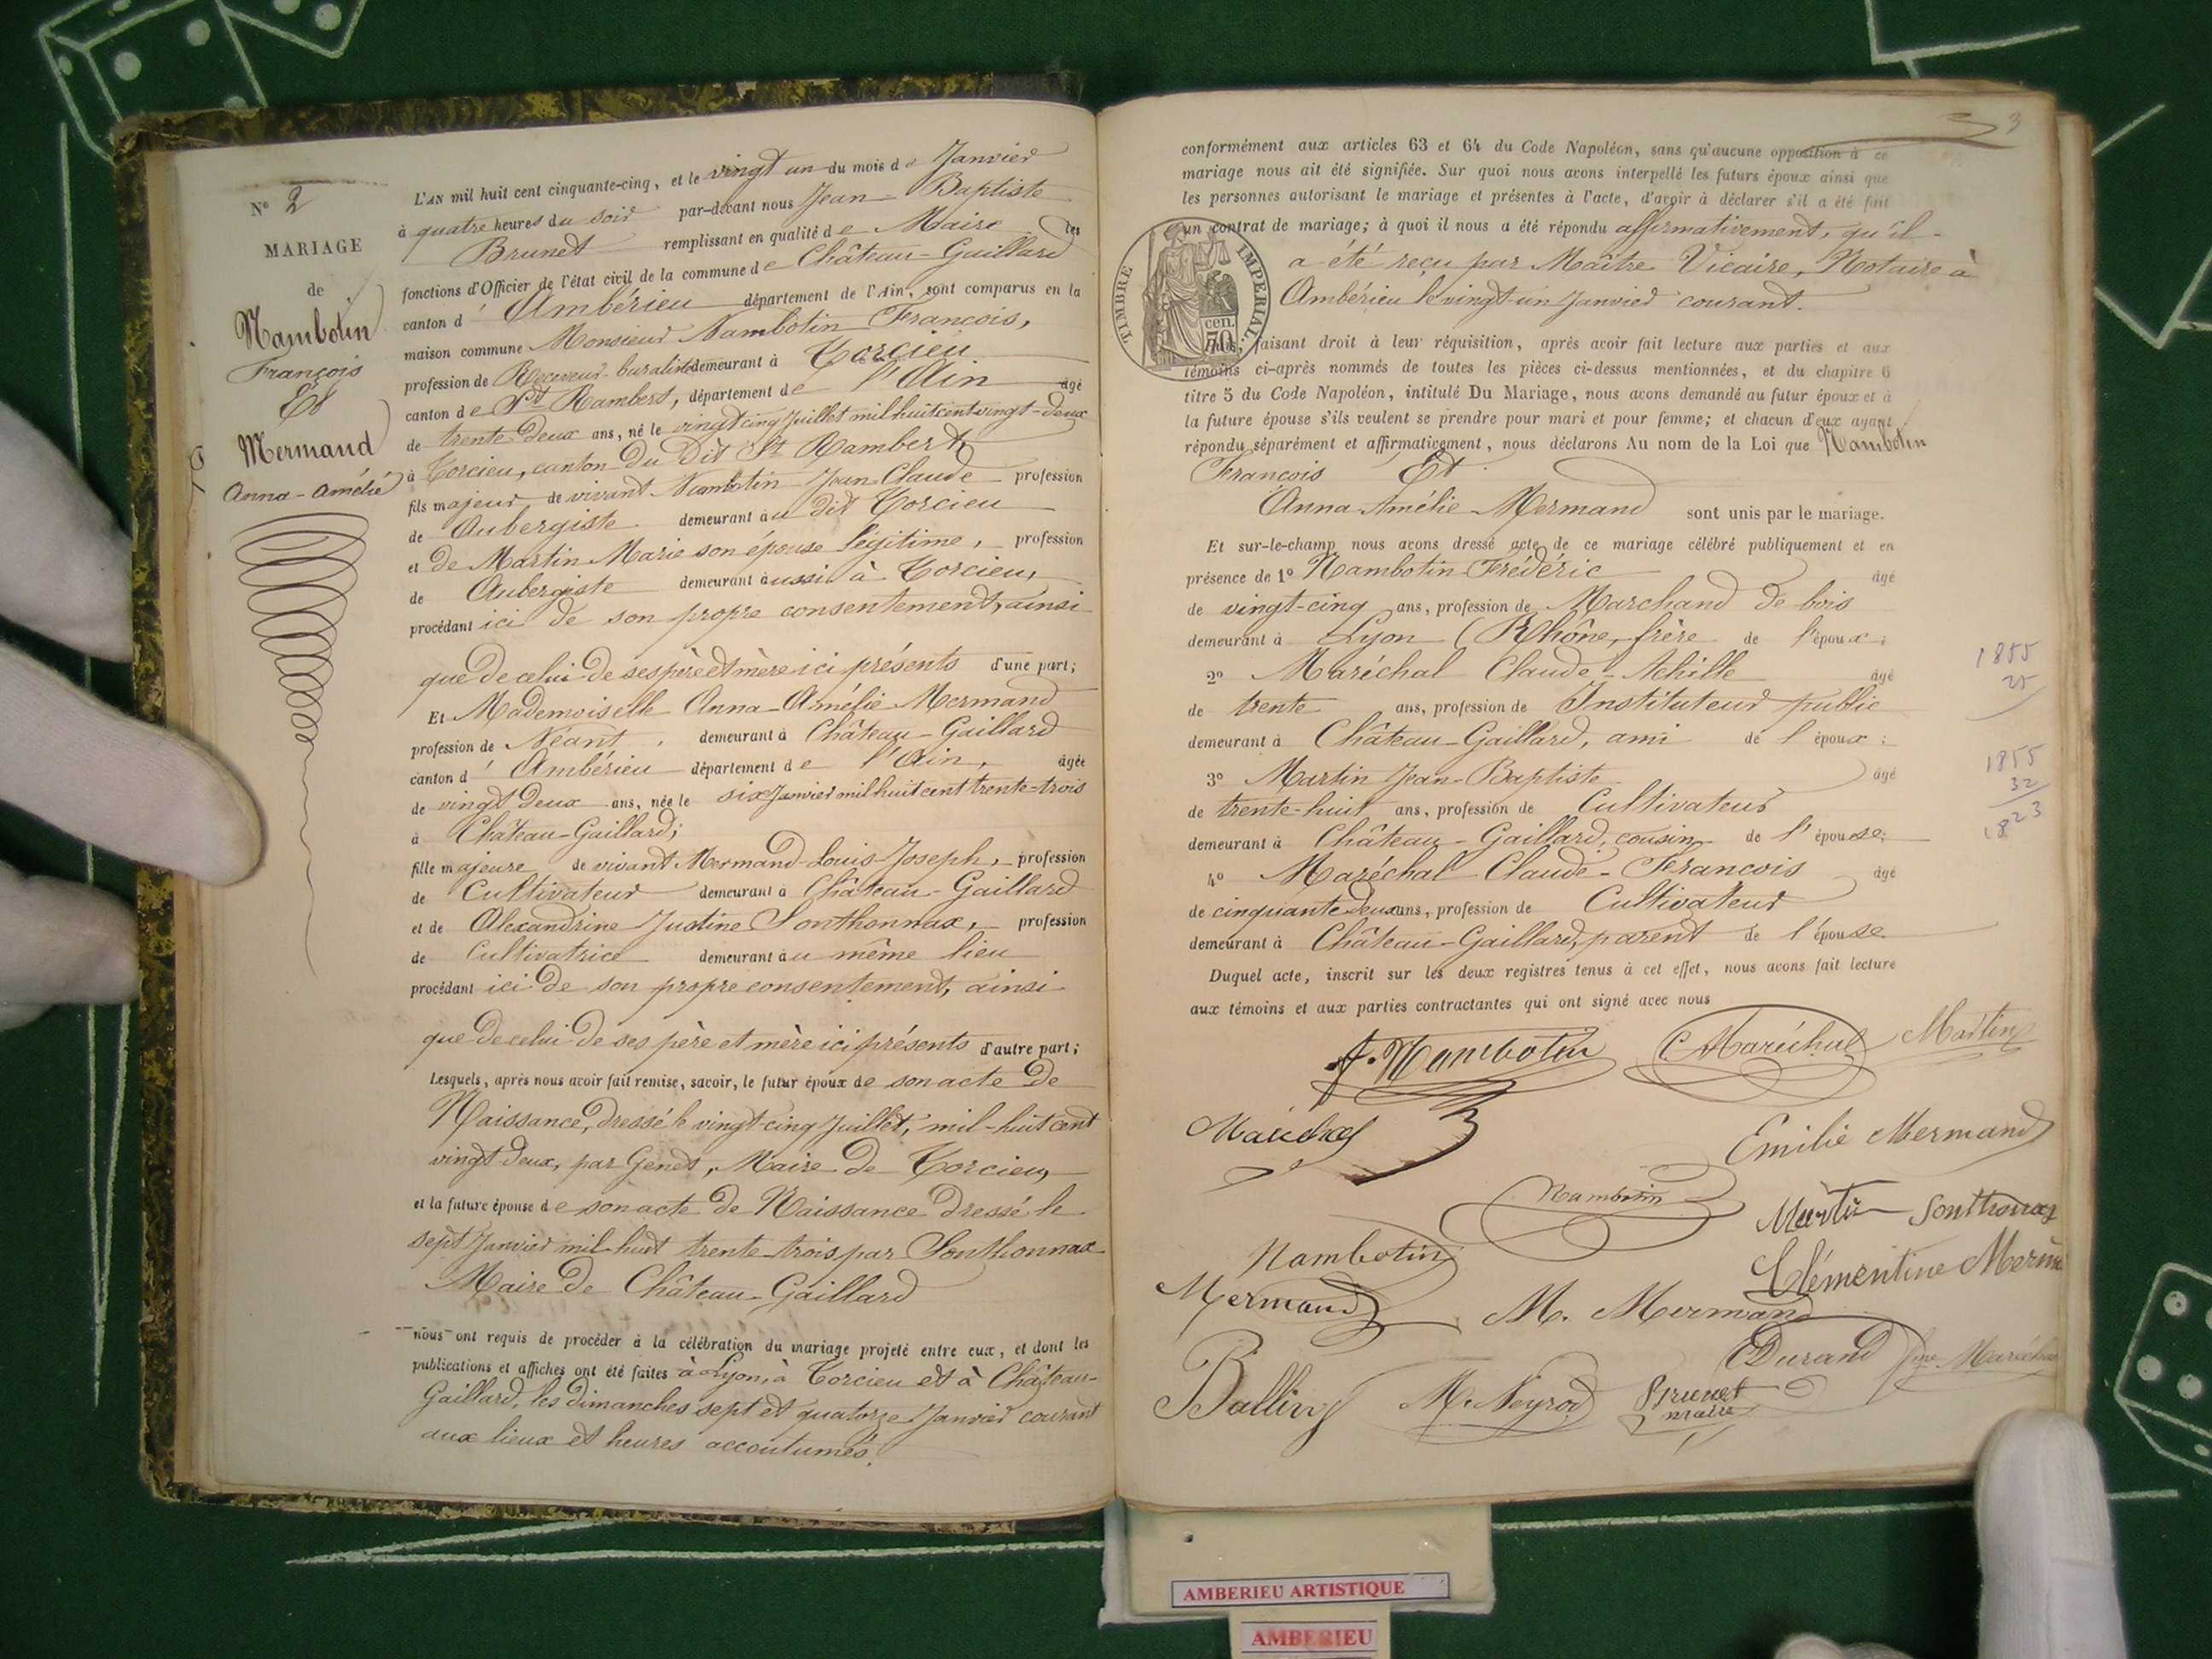 N° 2
MARIAGE
de
Nambotin
François
Et
Mermand
Anna-Amélie
L'AN mil huit cent cinquante-cinq, et le vingt un du mois de Janvier
à quatre heures du soir par-devant nous Jean-Baptiste
Brunet remplissant en qualité de Maire les
fonctions d'Officier de l'état civil de la commune de Château-Gaillard
canton d'Ambérieu département de l'Ain, sont comparus en la
maison commune Monsieur Nambotin François,
profession de Receveur-buraliste demeurant à Torcieu
canton de St Rambert, département de l'Ain âgé
de trente deux ans, né le vingt cinq Juillet mil huit cent vingt-deux
à Torcieu, canton du dit St Rambert
fils majeur de vivant Nambotin Jean Claude profession
de Aubergiste demeurant au dit Torcieu
et de Martin Marie son épouse légitime, profession
de Aubergiste demeurant aussi à Torcieu,
procédant ici de son propre consentement, ainsi
que de celui de ses père et mère ici présents d'une part;
Et Mademoiselle Anna-Amélie Mermand
profession de Néant, demeurant à Château-Gaillard
canton d'Ambérieu département de l'Ain, âgée
de vingt deux ans, née le six Janvier mil huit cent trente-trois
à Château-Gaillard;
fille majeure de vivant Mermand Louis-Joseph, profession
de Cultivateur demeurant à Château-Gaillard
et de Alexandrine Justine Sonthonnax, profession
de Cultivatrice demeurant au même lieu
procédant ici de son propre consentement, ainsi
que de celui de ses père et mère ici présents d'autre part;
Lesquels, après nous avoir fait remise, savoir, le futur époux de son acte de
Naissance, dressé le vingt-cinq Juillet, mil-huit cent
vingt deux, par Genet, Maire de Torcieu,
et la future épouse de son acte de Naissance dressé le
sept Janvier mil-huit trente-trois par Sonthonnax
Maire de Château-Gaillard
nous ont requis de procéder à la célébration du mariage projeté entre eux, et dont les
publications et affiches ont été faites à Lyon, à Torcieu et à Château-
Gaillard, les dimanches sept et quatorze Janvier courant
aux lieux et heures accoutumés.
3
conformément aux articles 63 et 64 du Code Napoléon, sans qu'aucune opposition à ce
mariage nous ait été signifiée. Sur quoi nous avons interpellé les futurs époux ainsi que
les personnes autorisant le mariage et présentes à l'acte, d'avoir à déclarer s'il a été fait
un contrat de mariage; à quoi il nous a été répondu affirmativement, qu'il
a été reçu par Maître Vicaire, Notaire à
Ambérieu le vingt un Janvier courant.
TIMBRE IMPERIAL
cen.
70
Nous, faisant droit à leur réquisition, après avoir fait lecture aux parties et aux
témoins ci-après nommés de toutes les pièces ci-dessus mentionnées, et du chapitre 6
titre 5 du Code Napoléon, intitulé Du Mariage, nous avons demandé au futur époux et à
la future épouse s'ils veulent se prendre pour mari et pour femme; et chacun d'eux ayant
répondu séparément et affirmativement, nous déclarons Au nom de la Loi que Nambotin
François Et
Anna-Amélie Mermand sont unis par le mariage.
Et sur-le-champ nous avons dressé acte de ce mariage célébré publiquement et en
présence de 1° Nambotin Frédéric âgé
de vingt-cinq ans, profession de Marchand de bois
demeurant à Lyon (Rhône, frère de l'époux;
2° Maréchal Claude-Achille âgé
de trente ans, profession de Instituteur public
demeurant à Château-Gaillard, ami de l'époux;
3° Martin Jean-Baptiste âgé
de trente-huit ans, profession de Cultivateur
demeurant à Château-Gaillard, cousin de l'épouse;
4° Maréchal Claude-François âgé
de cinquante deux ans, profession de Cultivateur
demeurant à Château-Gaillard, parent de l'épouse
Duquel acte, inscrit sur les deux registres tenus à cet effet, nous avons fait lecture
aux témoins et aux parties contractantes qui ont signé avec nous
1855
25
1855
32
1823
f. Nambotin C Maréchal Martin
Maréchal
Emilie Mermand
Nambotin
Martin Sonthonax
Nambotin
Clémentine Merm
Mermand M. Mermand
Durand fme Maréchal
Ballivy M. Neyrod Brunet
maire
AMBERIEU ARTISTIQUE
AMBERIEU